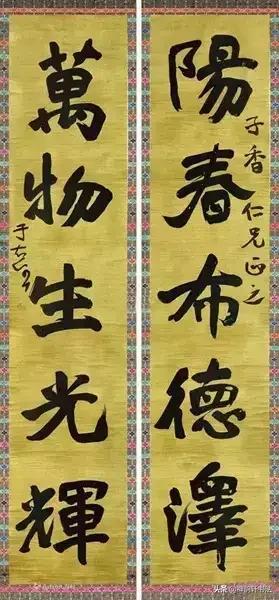 陽春布德澤
子香仁兄正之
萬物生光輝
于右任
头条